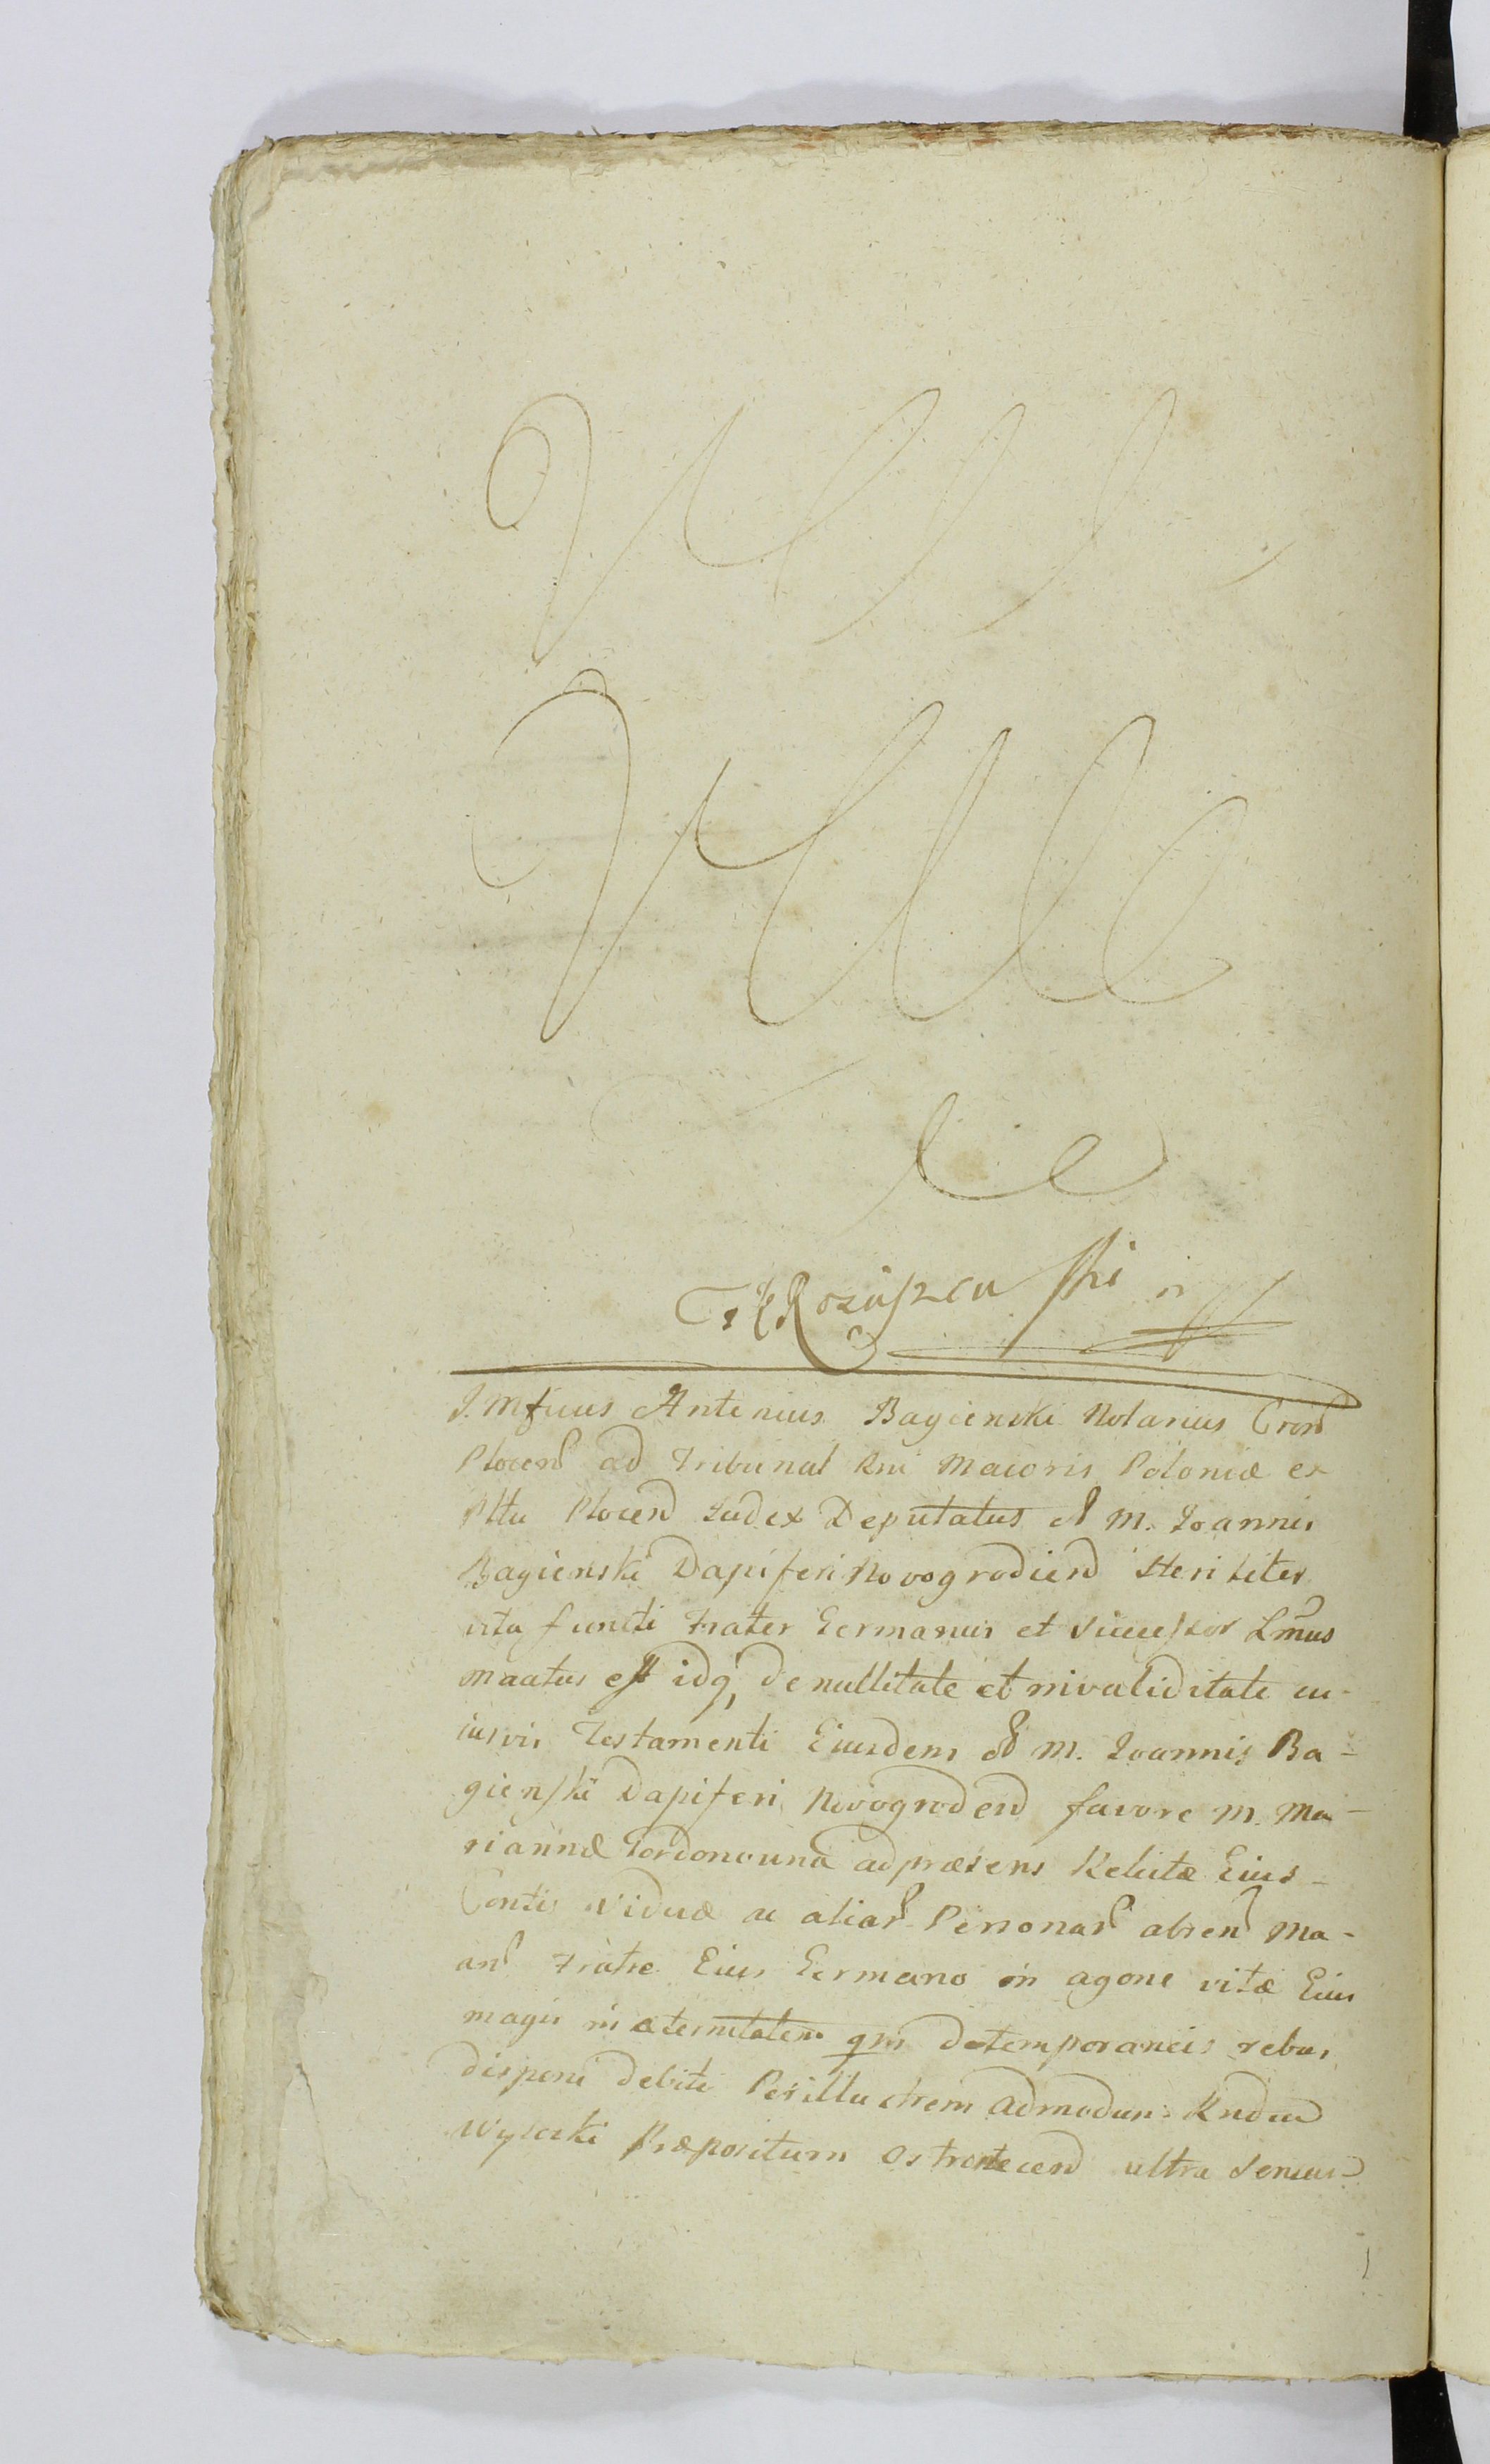 J. Mfcus Antonius Bagienski Notarius
Plocen ad Tribunal Rni Maioris Poloniæ ex
Pttu Plocen Judex Deputatus M. Joannis
Bagienski Dapiferi Novogrodien steriliter
vita functi Frater Germanus et Successor
idq, de nullitate et invaliditate cu-
iusvis Testamenti Eiusdem M. Joannis Ba-
gienski Dapiferi Novogroden favore M. Ma-
riannæ ad præsens Relictæ Eius
Contis Viduæ ac aliar Personar absen
Fratre Eius Germano in agone vitæ Eius
magis in æternitatem qm de temporaneis rebus
disponi debiti Perillustrem admodum Rndum
Wysocki Præpositum ultra